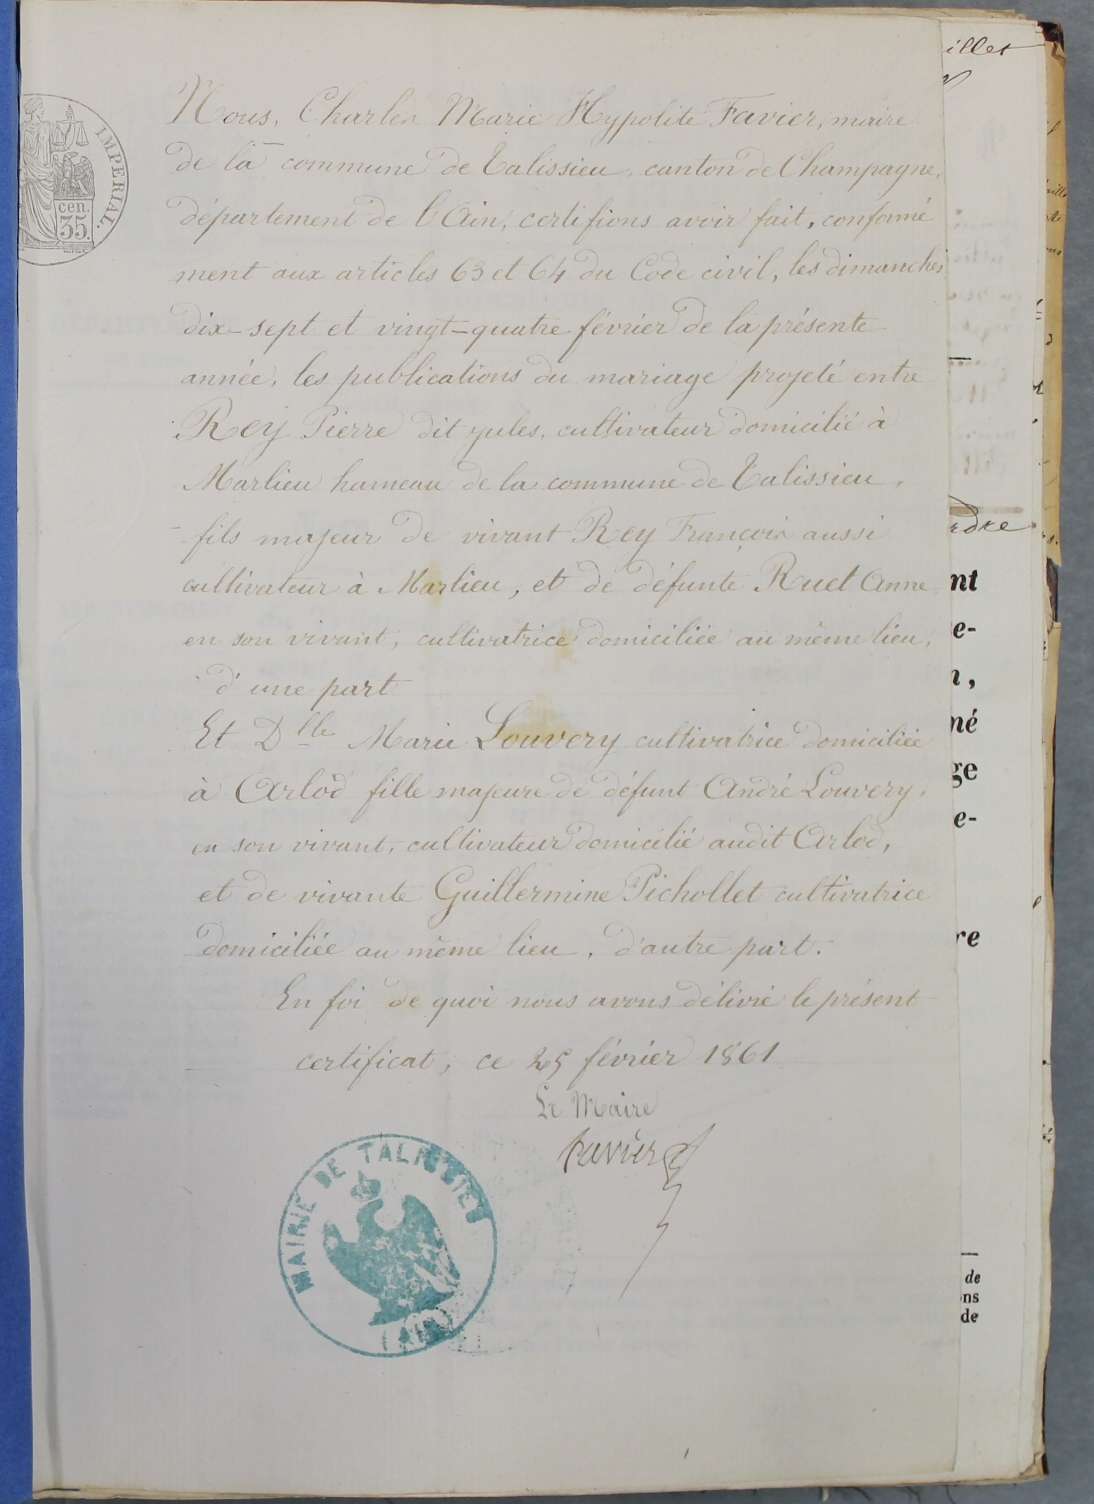 IMPERIAL.
cen.
35.
Nous, Charles Marie Hypolite Favier, maire
de la commune de Talissieu, canton de Champagne,
département de l'Ain, certifions avoir fait, conformé
ment aux articles 63 et 64 du Code civil, les dimanches
dix-sept et vingt-quatre février de la présente
année, les publications du mariage projeté entre
Rey Pierre dit Jules, cultivateur domicilié à
Marlieu hameau de la commune de Talissieu,
fils majeur de vivant Rey François aussi
cultivateur à Marlieu, et de défunte Ruet Anne
en son vivant, cultivatrice domiciliée au même lieu,
d'une part
Et Dlle Marie Louvery cultivatrice domiciliée
à Arlod fille majeure de défunt André Louvery,
en son vivant, cultivateur domicilié audit Arlod,
et de vivante Guillermine Pichollet cultivatrice
domiciliée au même lieu, d'autre part.
En foi de quoi nous avons délivré le présent
certificat, ce 25 février 1861
Le Maire
Favier
MAIRIE DE TALISSIEU
(AIN)
illet
rdre
nt
e-
n,
né
ge
e-
re
de
ons
de